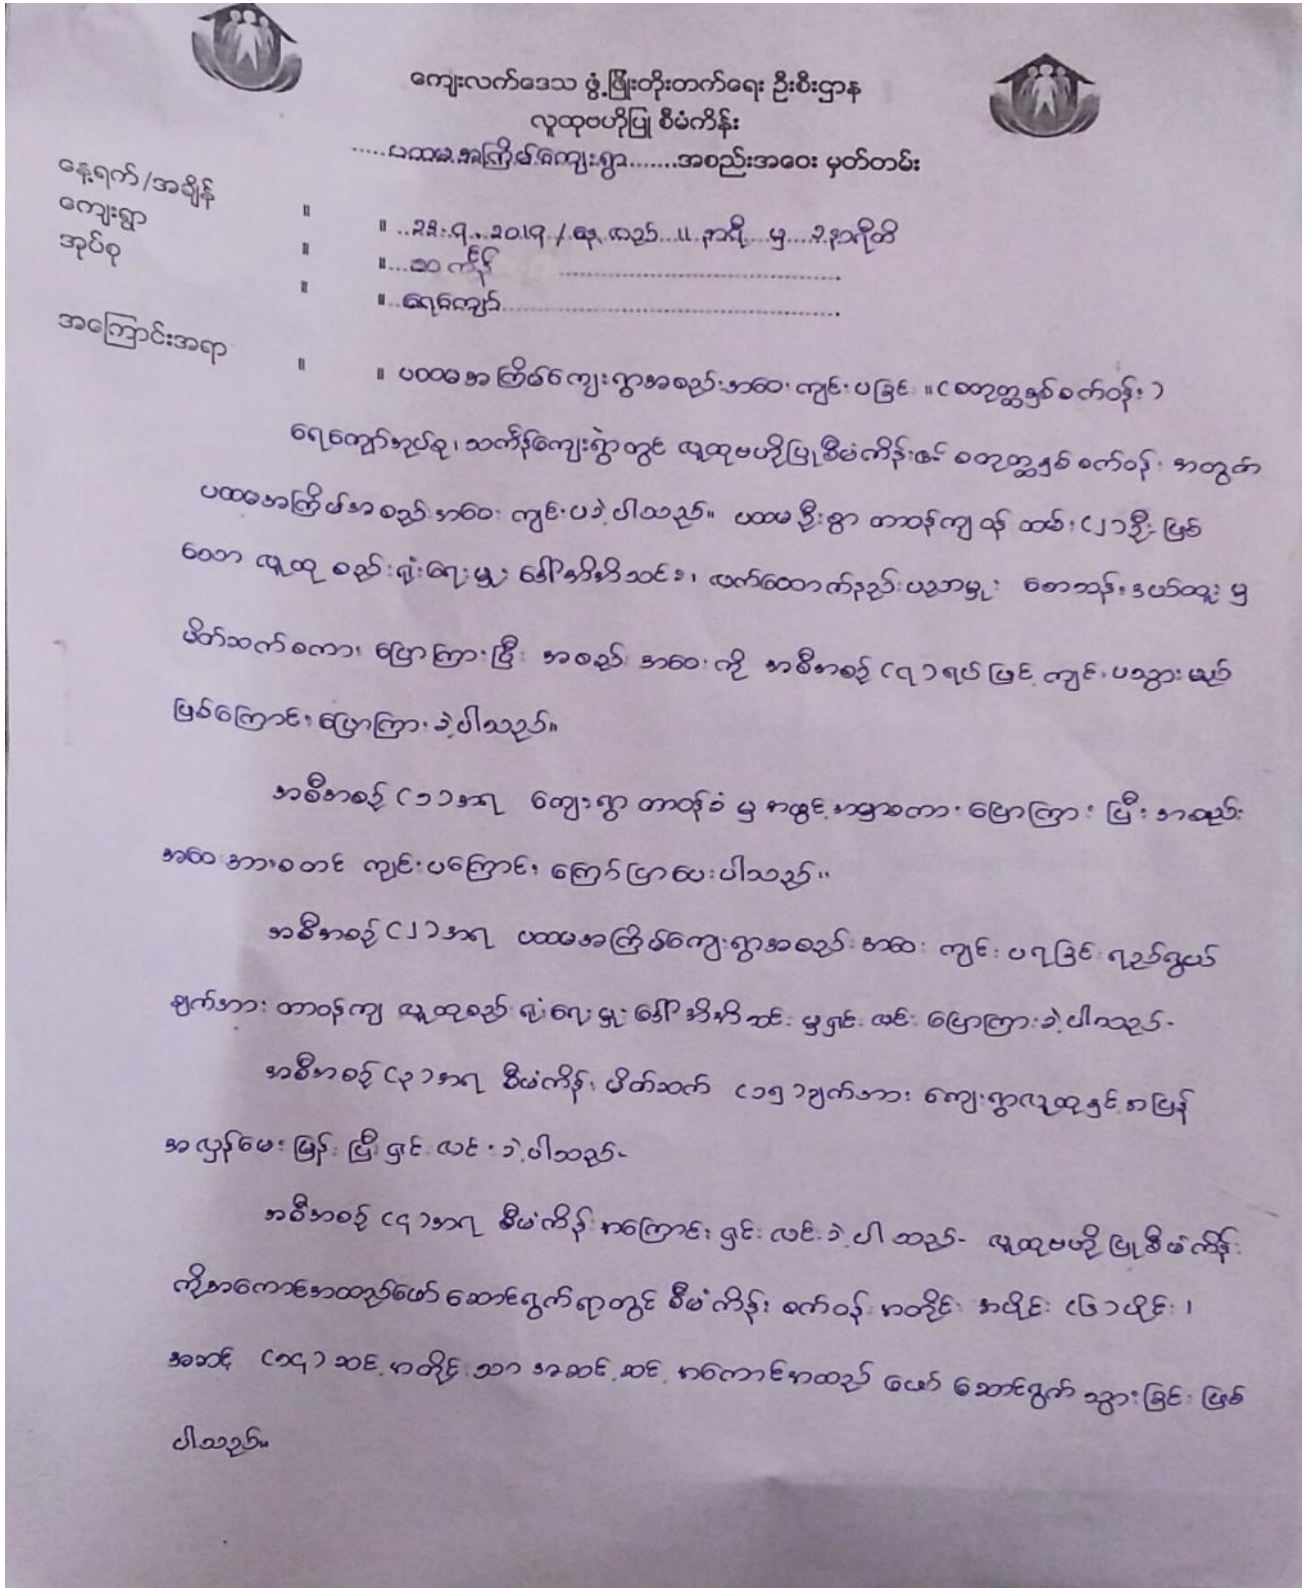 ကျေးလက်ဒေသ ဖွံ့ဖြိုးတိုးတက်ရေး ဦးစီးဌာန
လူထုဗဟိုပြု စီမံကိန်း
.....ပထမအကြိမ်ကျေးရွာ.......အစည်းအဝေး မှတ်တမ်း
နေ့ရက်/အချိန် ။ ။ ..၂၃.၇..၂၀၁၇ / နေ့လည် ၁၁ နာရီ မှ ၁နာရီထိ
ကျေးရွာ ။ ။...သင်္ကန်
အုပ်စု ။ ။..ရေကျော်
အကြောင်းအရာ ။ ။ ပထမအကြိမ်ကျေးရွာအစည်းအဝေးကျင်းပခြင်း ။(စတုတ္ထနှစ်စက်ဝန်း)
ရေကျော်အုပ်စု၊ သင်္ကန်ကျေးရွာတွင် လူထုဗဟိုပြုစီမံကိန်း၏ စတုတ္ထနှစ်စက်ဝန်း အတွက်
ပထမအကြိမ်အစည်းအဝေး ကျင်းပခဲ့ပါသည်။ ပထမဦးစွာ တာဝန်ကျဝန်ထမ်း (၂)ဦး ဖြစ်
သော လူထု စည်းရုံးရေးမှူး ဒေါ်အိအိသင်း၊ လက်ထောက်နည်းပညာမှူး စောသန်းဒယ်ထူး မှ
မိတ်ဆက်စကား ပြောကြားပြီး အစည်းအဝေးကို အစီအစဉ် (၇)ရပ်ဖြင့် ကျင်းပသွားမည်
ဖြစ်ကြောင်း ပြောကြားခဲ့ပါသည်။
အစီအစဉ် (၁)အရ ကျေးရွာ တာဝန်ခံ မှ အဖွင့်အမှာစကား ပြောကြားပြီး အစည်း
အဝေးအားစတင် ကျင်းပကြောင်း ကြေညာပေးပါသည်။
အစီအစဉ် (၂)အရ ပထမအကြိမ်ကျေးရွာအစည်းအဝေး ကျင်းပရခြင်း ရည်ရွယ်
ချက်အား တာဝန်ကျ လူထုစည်းရုံးရေးမှူး ဒေါ်အိအိသင်း မှရှင်းလင်း ပြောကြားခဲ့ပါသည်-
အစီအစဉ် (၃)အရ စီမံကိန်း မိတ်ဆက် (၁၅)ချက်အား ကျေးရွာလူထုနှင့် အပြန်
အလှန်မေးမြန်းပြီး ရှင်းလင်းခဲ့ပါသည်-
အစီအစဉ် (၄)အရ စီမံကိန်းအကြောင်း ရှင်းလင်းခဲ့ပါသည်- လူထုဗဟိုပြုစီမံကိန်း
ကိုအကောင်အထည်ဖော် ဆောင်ရွက်ရာတွင် စီမံကိန်း စက်ဝန်းအတိုင်း အပိုင်း (၆)ပိုင်း ၊
အဆင့် (၁၄)ဆင့်အတိုင်းသာ အဆင့်ဆင့် အကောင်အထည် ဖော် ဆောင်ရွက် သွားခြင်း ဖြစ်
ပါသည်။